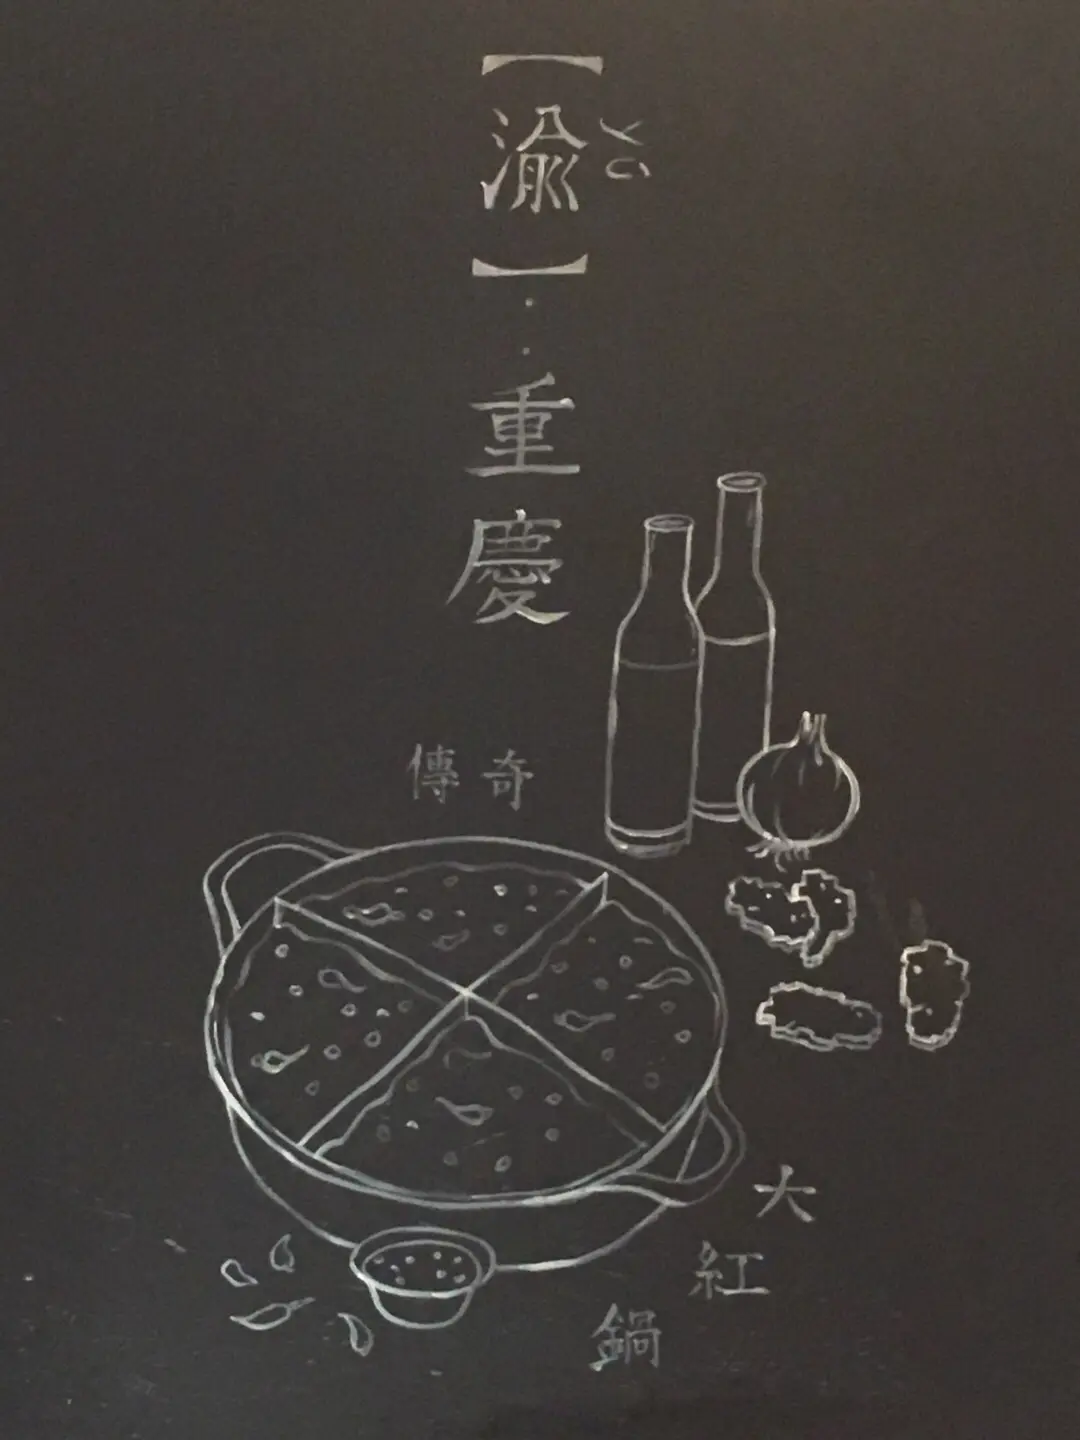 【渝】yú··重慶
傳奇
大紅鍋